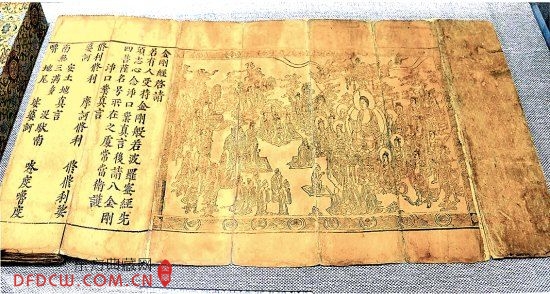 金剛經啓請
若有人受持金剛般若波羅蜜經先
須志心念淨口業真言後請八金剛
四菩薩名号所在之處常當擁護
淨口業真言
脩利脩利 摩訶脩利 脩脩利娑
婆訶
安土地真言
南無三滿哆 没馱喃 唵度嚕度
嚕 地尾 娑婆訶
DFDCW.COM.CN